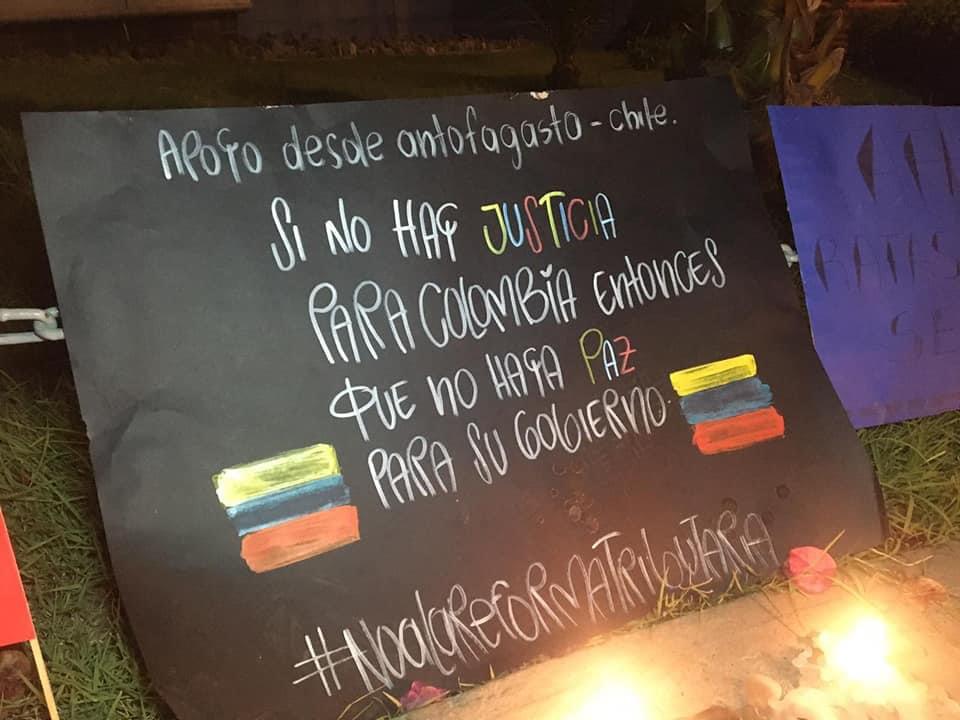 Apoyo desde antofagasta - chile.
SI NO HAY JUSTICIA
PARA COLOMBIA ENTONCES
QUE NO HAYA PAZ
PARA SU GOBIERNO.
#NoalaReFORMATRibutaria